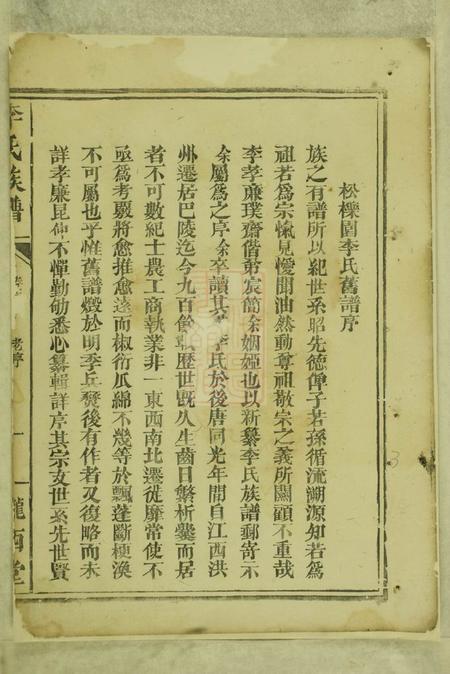 松櫟園李氏舊譜序
族之有譜所以紀世系昭先德俾子若孫循流溯源知若爲
祖若爲宗愾見懓聞油然動尊祖敬宗之義所關顧不重哉
李孝廉璞齋偕弟宸簡余姻婭也以新纂李氏族譜郵寄示
余屬爲之序余卒讀其 李氏於後唐同光年間自江西洪
州遷居巴陵迄今九百餘載歷世旣久生齒日繁析爨而居
者不可數紀士農工商執業非一東西南北遷徙靡常使不
亟爲考覈將愈推愈遠而椒衍瓜綿不幾等於飄蓬斷梗渙
不可屬也乎惟舊譜燬於明季兵燹後有作者又復略而未
詳孝廉昆仲不憚勤劬悉心纂輯詳序其宗支世系先世賢
李氏族譜
老序
一
隴西堂
3